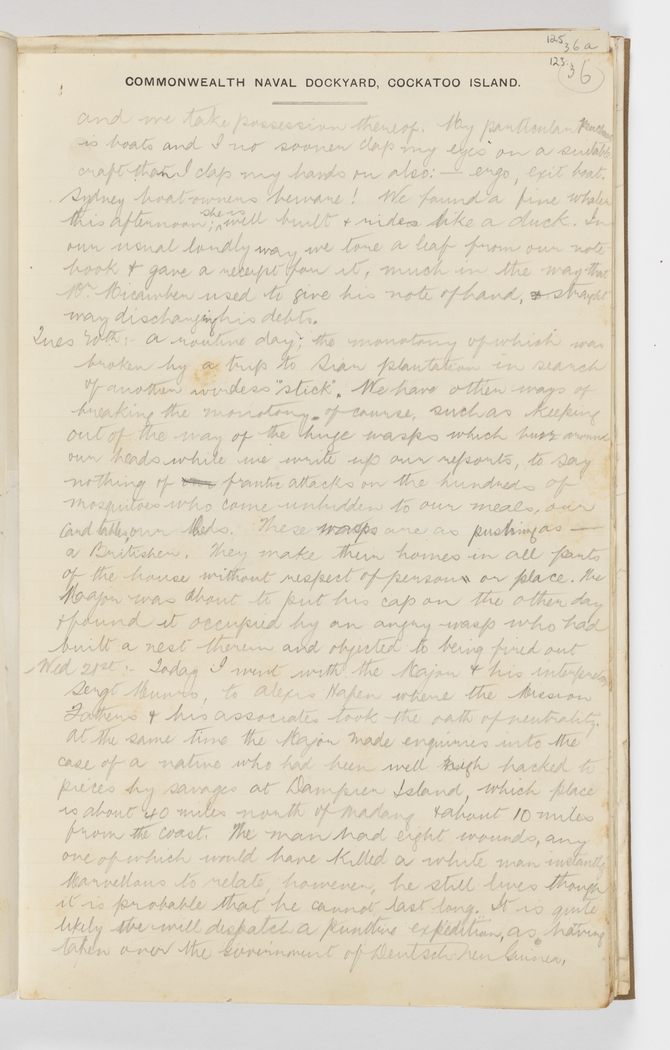 125
36a
123
36
COMMONWEALTH NAVAL DOCKYARD, COCKATOO ISLAND.
and we take possession thereof. My particular
is boats and I no sooner clap my eyes on a suitable
craft than I clap my hands on also: — ergo, exit boat.
Sydney boat owners beware! We found a fine whaler
this afternoon; she is well built & rides like a duck. In
our usual lordly way we tore a leaf from our note
book & gave a receipt for it, much in the way that
Mr. Micawber used to give his note of hand, straight
way discharging his debts.
Tues 20th:- a routine day; the monotony of which was
broken by a trip to Siar plantation in search
of another wireless "stick". We have other ways of
breaking the monotony of course, such as keeping
out of the way of the huge wasps which buzz around
our heads while we write up our reports, to say
nothing of frantic attacks on the hundreds of
mosquitoes who come unbidden to our meals, our
card table, our beds. These wasps are as pushing as —
a Britisher. They make their homes in all parts
of the house without respect of persons or place. The
Major was about to put his cap on the other day
& found it occupied by an angry wasp who had
built a nest therein and objected to being fired out
Wed 21st:- Today I went with the Major & his interpreter
Sergt to Alexis Hafen where the Mission
Fathers & his associates took the oath of neutrality.
At the same time the Major made enquiries into the
case of a native who had been well nigh hacked to
pieces by savages at Dampier Island, which place
is about 40 miles north of Madang & about 10 miles
from the coast. The man had eight wounds, any
one of which would have killed a white man instantly
Marvellous to relate, however, he still lives though
it is probable that he cannot last long. It is quite
likely we will dispatch a punitive expedition, as, having
taken over the government of Deutsch New Guinea,